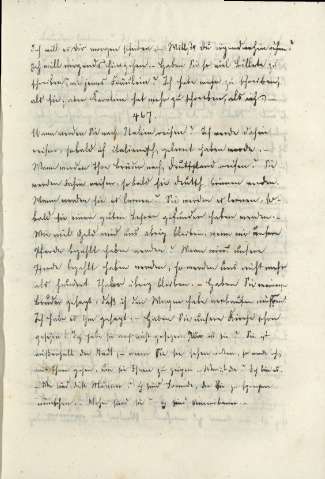 Ich will es dir morgen schicken. — Willst du irgendwohin gehen?
Ich will nirgends hingehen. — Haben Sie so viel Billete zu
schreiben, als jenes Fräulein? Ich habe mehr zu schreiben,
als sie, aber Karoline hat mehr zu schreiben, als ich. —
467.
Wann werden Sie nach Italien reisen? Ich werde dahin
reisen, sobald ich italienisch gelernt haben werde. —
Wann werden Ihre Brüder nach Deutschland reisen? Sie
werden dahin reisen, sobald sie deutsch können werden.
Wann werden sie es lernen? Sie werden es lernen, so-
bald sie einen guten Lehrer gefunden haben werden. —
Wie viel Geld wird uns übrig bleiben, wenn wir unsere
Pferde bezahlt haben werden? Wenn wir unsere
Pferde bezahlt haben werden, so werden uns nicht mehr
als hundert Thaler übrig bleiben. — Haben Sie meinem
Bruder gesagt, daß ich den Wagen habe verkaufen müssen?
Ich habe es ihm gesagt. — Haben Sie unsere Kirche schon
gesehen? Ich habe sie noch nicht gesehen. Wo ist sie? Sie ist
außerhalb der Stadt; — wenn Sie sie sehen wollen, so werde ich
mit Ihnen gehen, um sie Ihnen zu zeigen. — Wer ist da? Ich bin es.
— Wer sind diese Männer? Es sind Fremde, die Sie zu sprechen
wünschen. — Woher sind sie? Es sind Amerikaner. —